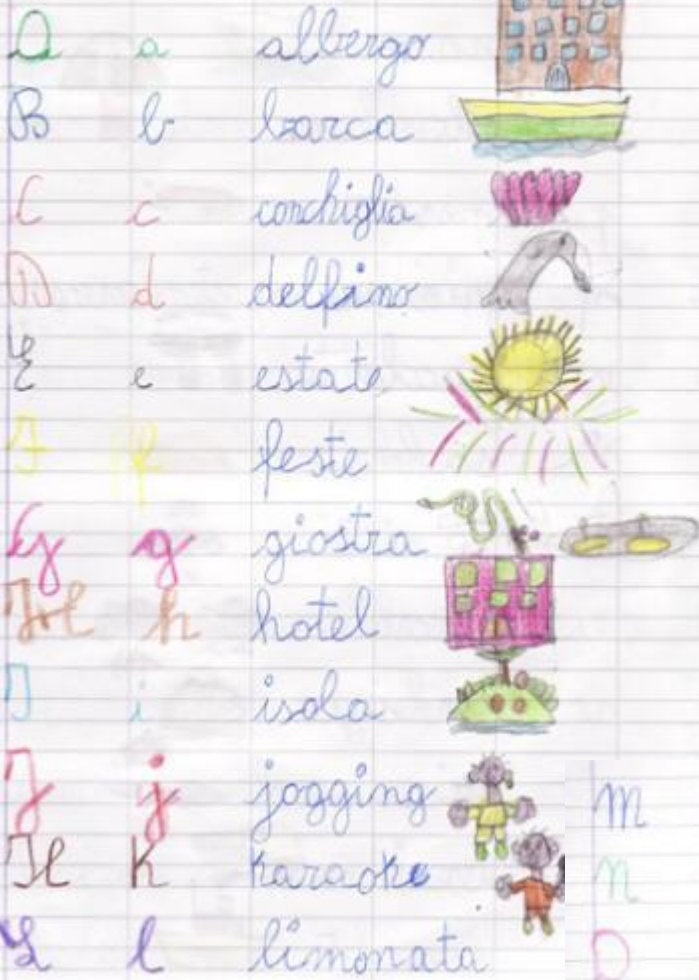 A a albergo
B b barca
C c conchiglia
D d delfino
E e estate
F f feste
G g giostra
H h hotel
I i isola
J j jogging
K k karaoke
L l limonata
m
n